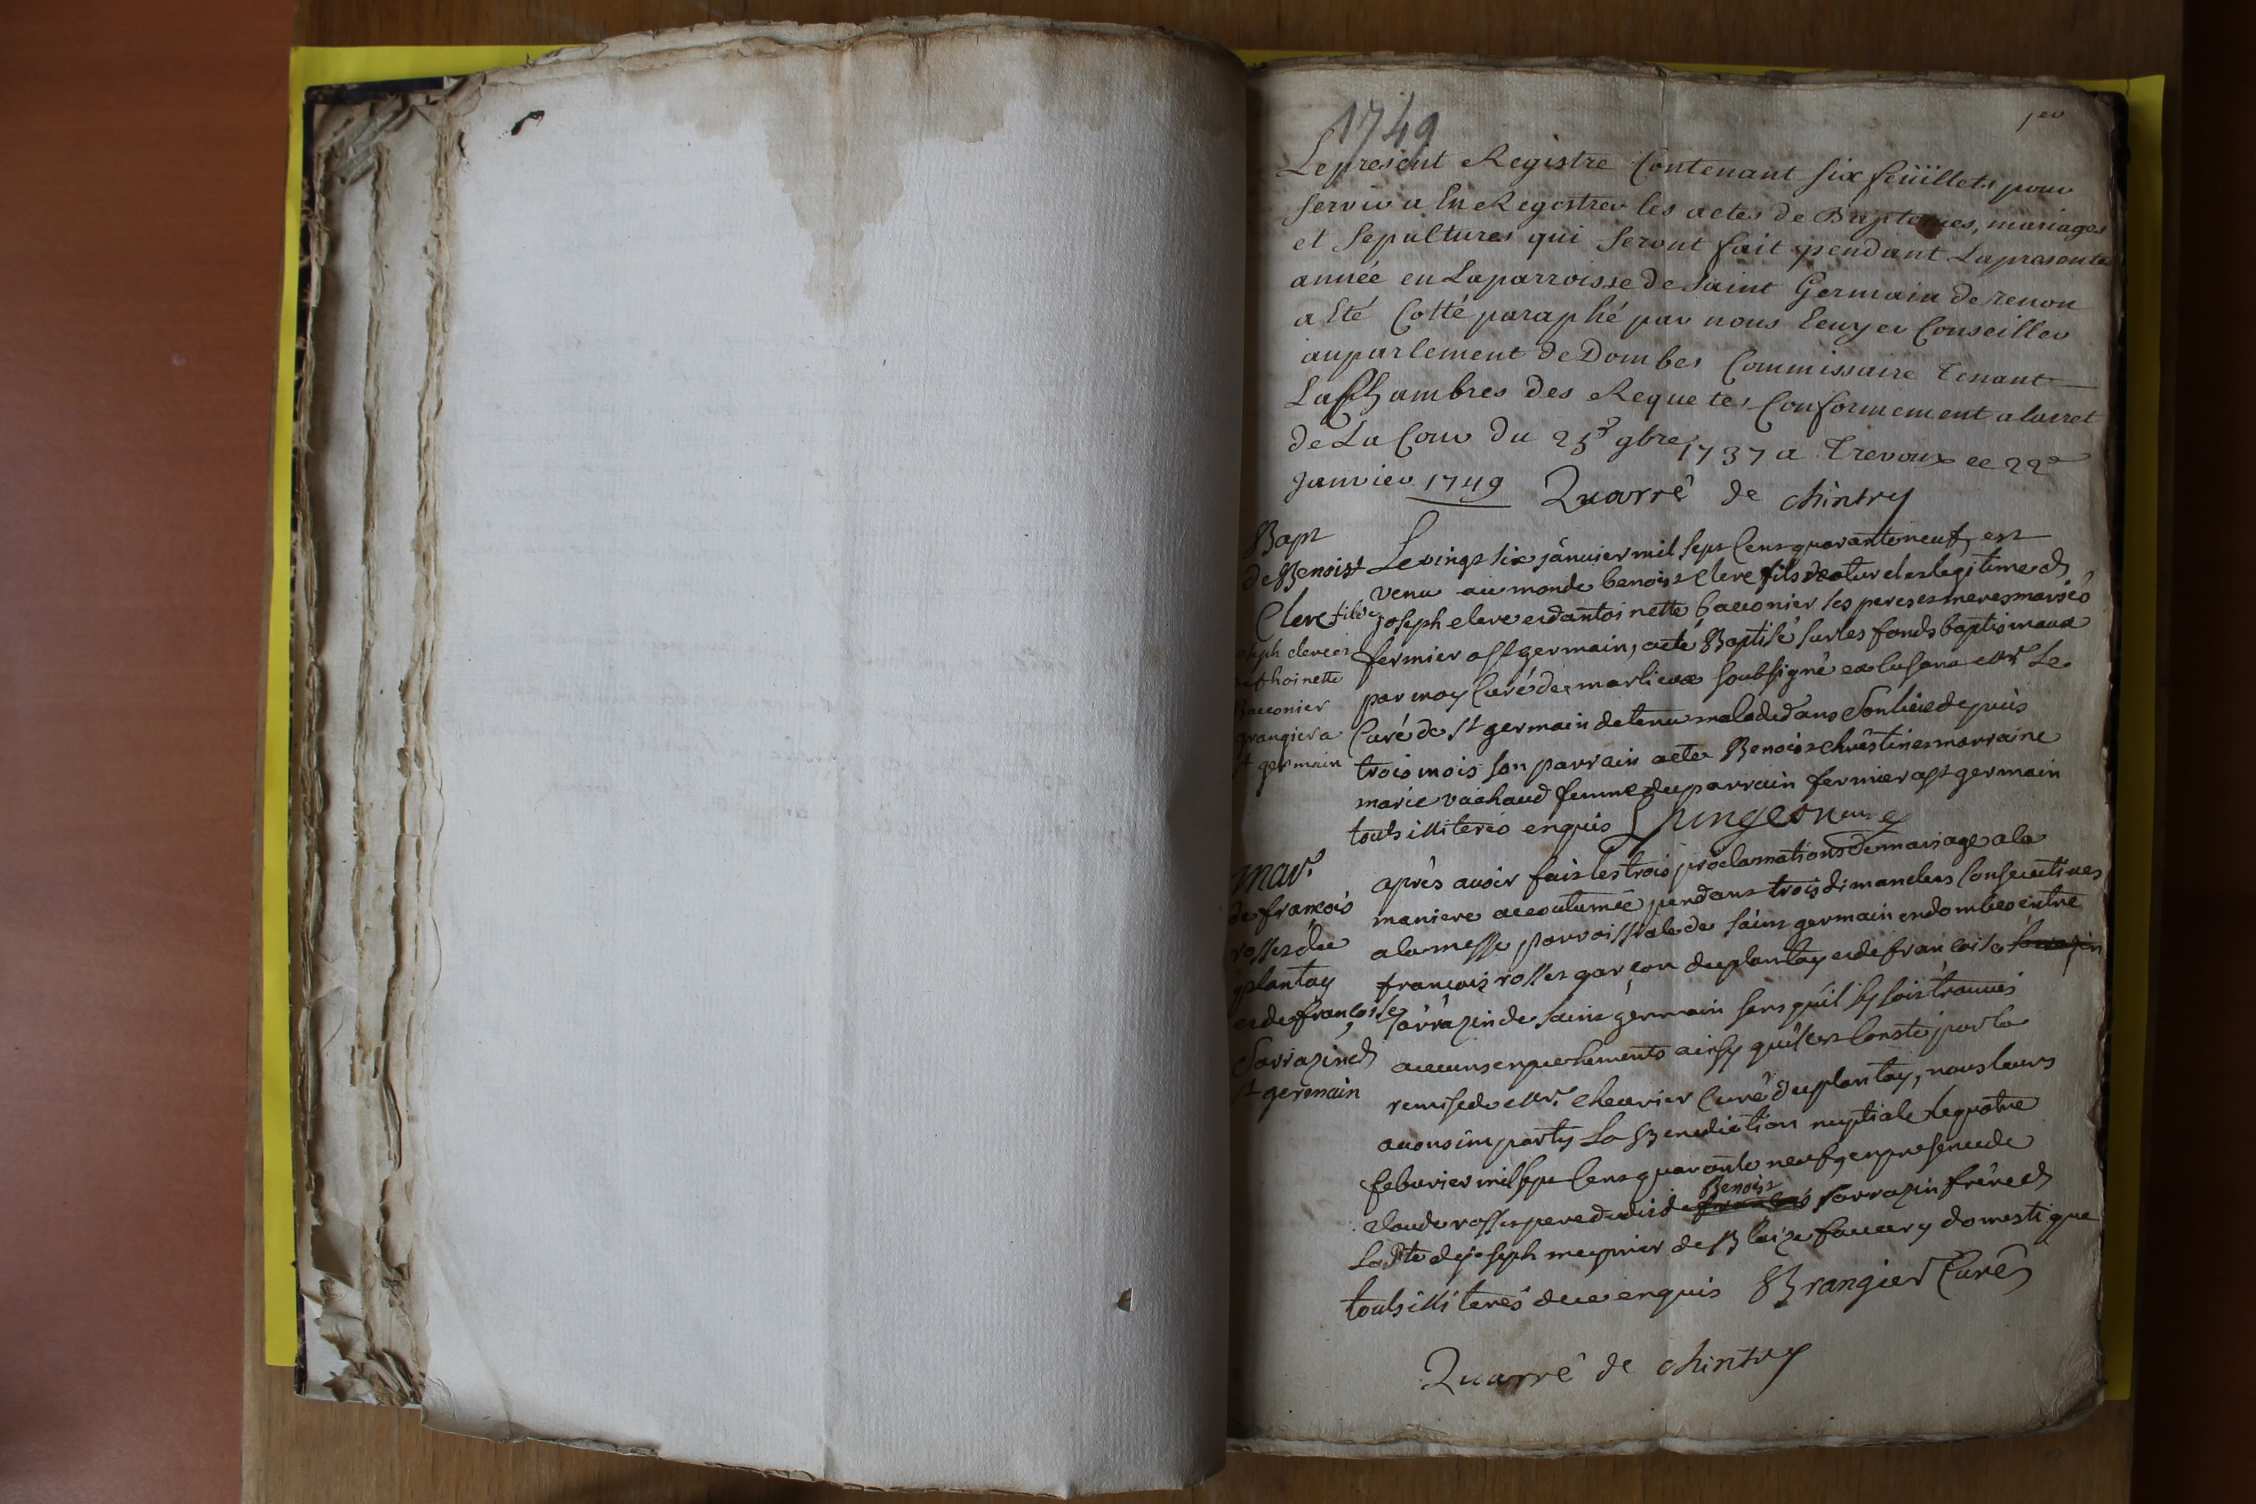 1749
1er
Le present Registre Contenant six feüillets pour
servir a En Registrer les actes de Baptemes, mariages
et Sepultures qui seront fait pendant La presente
année en La parroisse de saint Germain de renon
a Eté Cotté paraphé par nous Ecuyer Conseiller
au parlement de Dombes Commissaire Tenant
La Chambres des Requetes Conformement a larret
de La Cour du 25e 9bre 1737 a Trevoux ce 22e
Janvier 1749 Quarré de chintry
Bapt
de Benoist
Clerc fils de
oseph clerc et
anthoinette
Bacconier
grangier a
st germain
Le vingt six janvier mil sept Cent quarante neuf, est
venu au monde benoist clerc fils naturel et legitime de
joseph clerc et d'antoinette bacconier ses peres et meres mariés
fermier a st germain, a eté Baptisé sur les fonds baptismaux
par moy Curé de marlieux soubsigné en l'absence Mr Le
Curé de st germain detenu malade dans son lit depuis
trois mois son parrain a eté Benoist chrêstin et marraine
marie vachaud femme du parrain fermier a st germain
touts illiterés enquis Jungeon curé
mar.
de françois
rosset du
plantay
et de françoise
Sarrazin de
st germain
aprés avoir fait les trois proclamations de mariage a la
maniere accoutumée pendant trois dimanches Consecutives
a la messe parroissiale de saint germain en dombes entre
françois rosset garçon du plantay et de françoise
Sarrazin de saint germain sans qu'il sy soit trouvés
aucuns enpechements ainsy qu'il est Consté par la
remise de Mr. chevrier Curé du plantay, nous leurs
avons imparty La Benediction nuptiale le quatre
febvrier mil sept Cent quarante neuf, en presence de
claude rosset pere dudit de Benoist sarrazin frère de
La dte de joseph meynier de Blaize favary domestique
touts illiterés de ce enquis Brangier Curé
Quarré de chintry